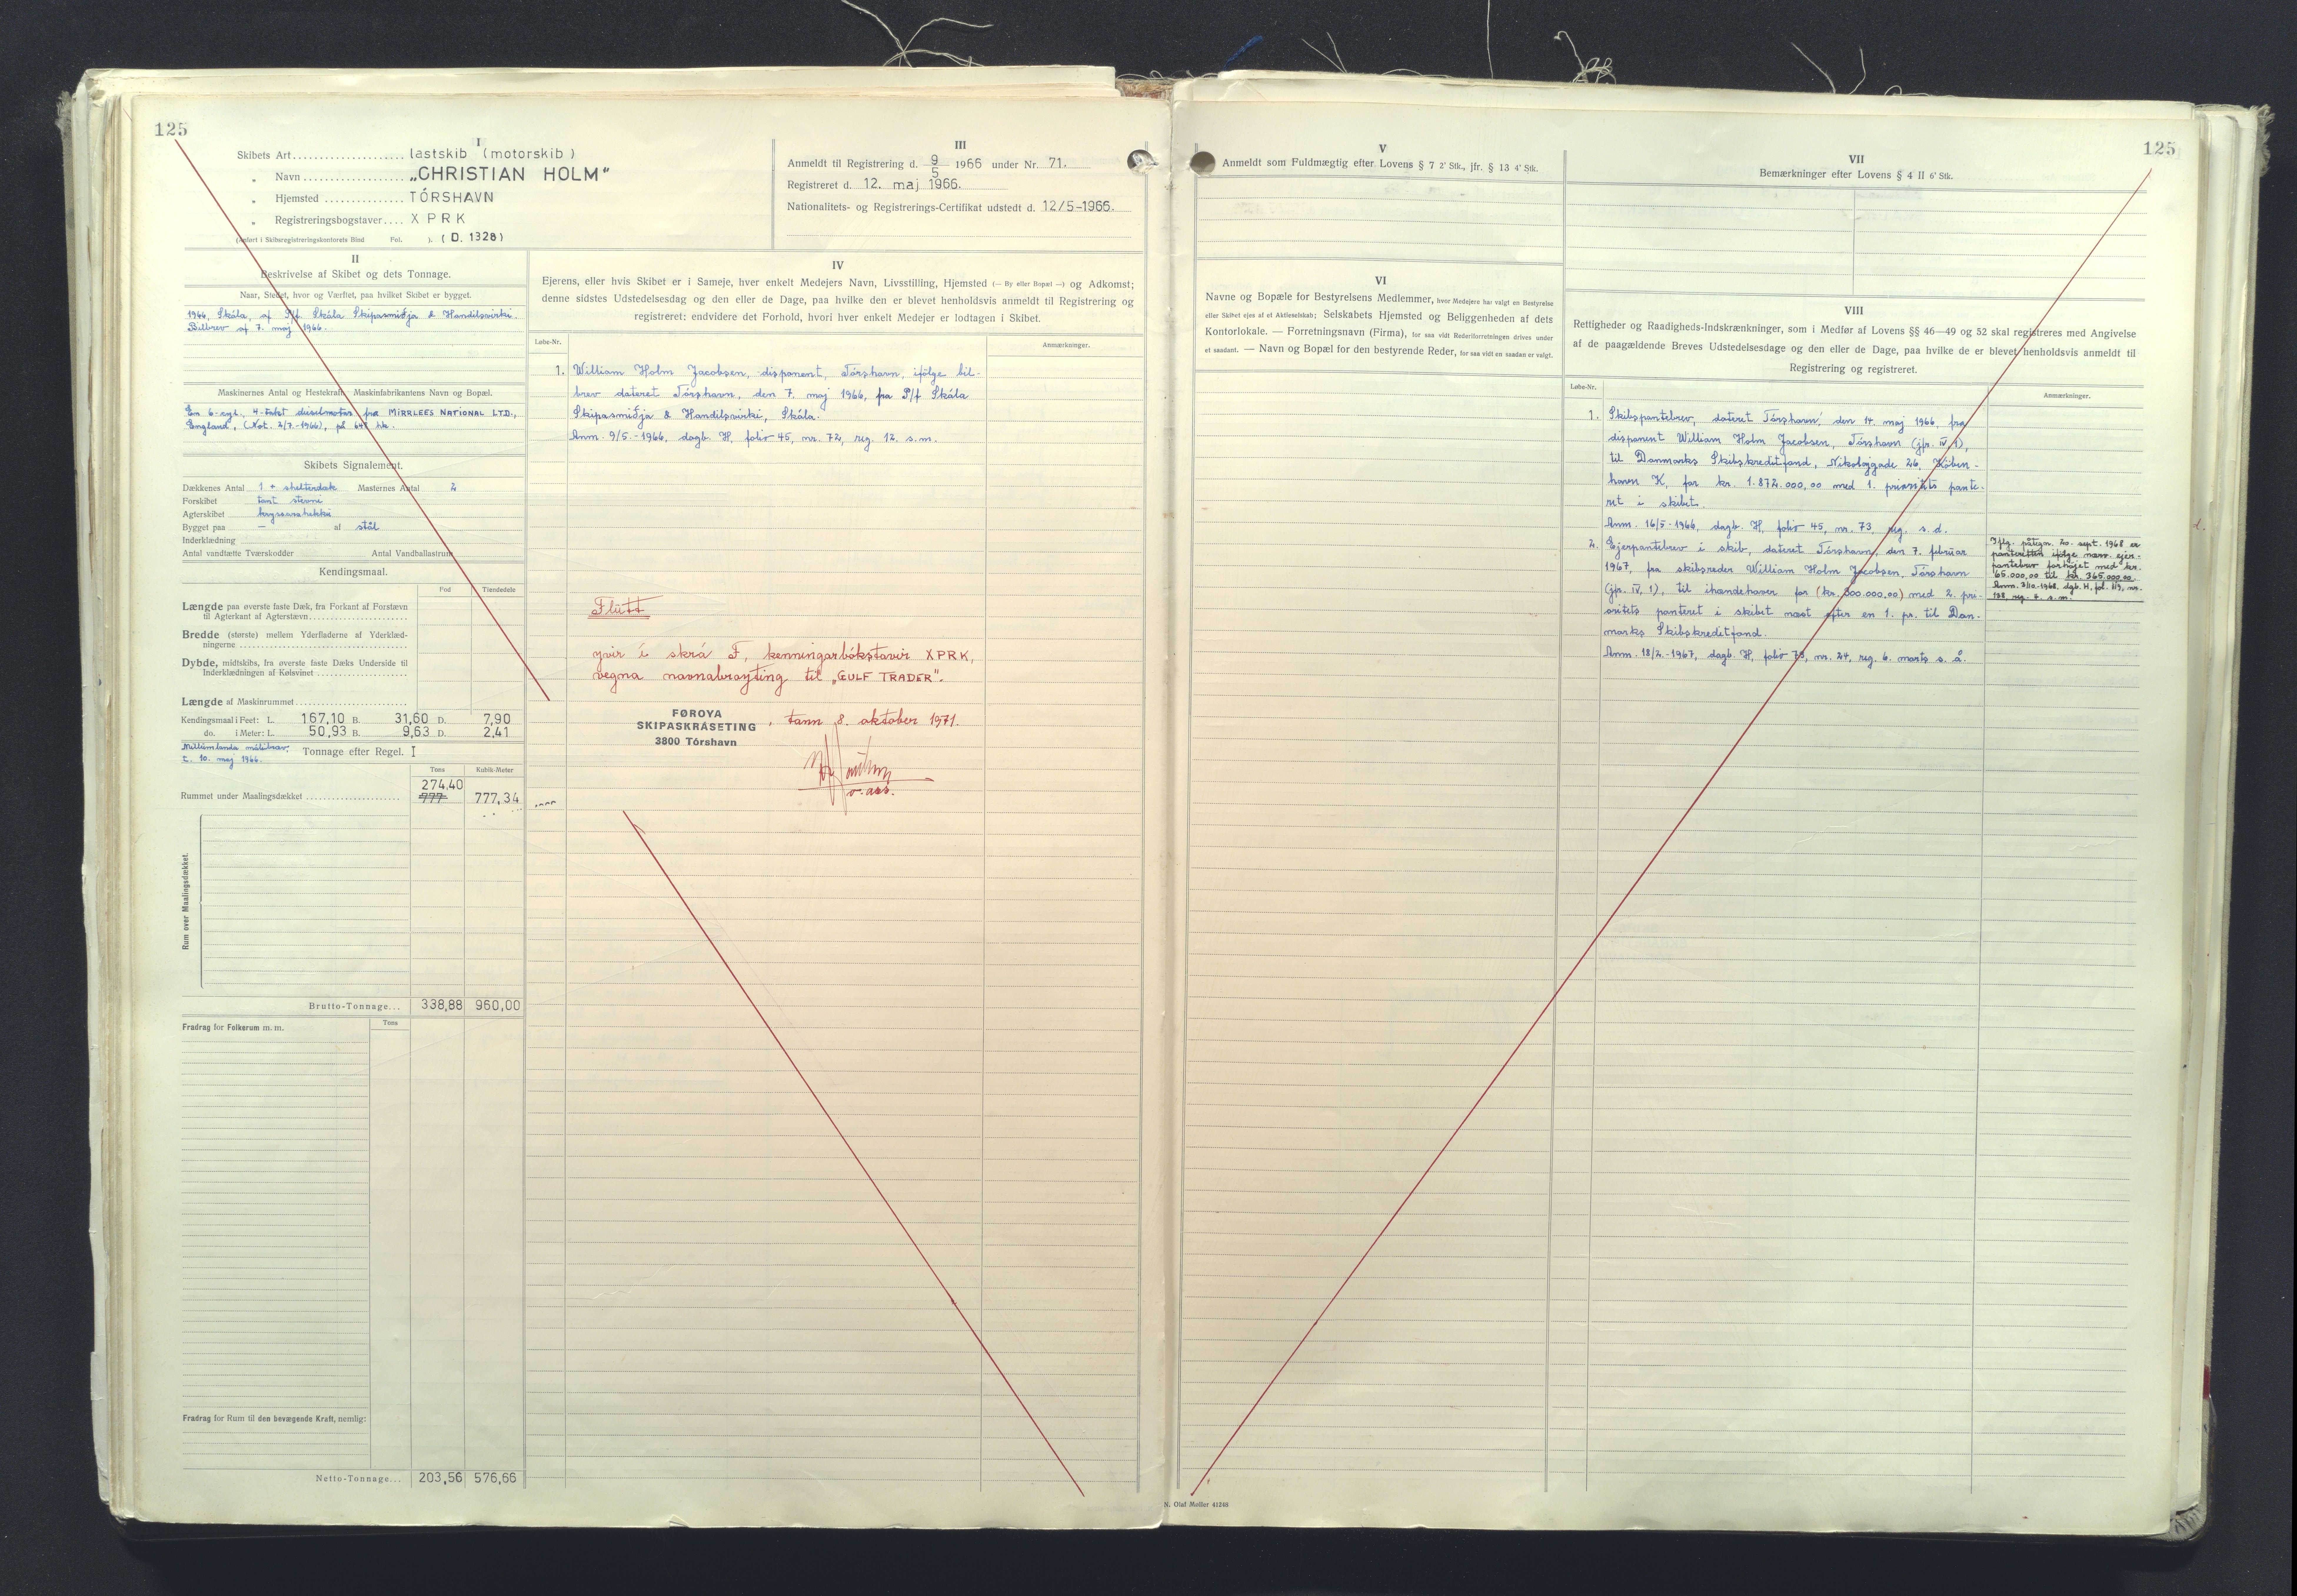 125
I
Skibets Art..................... lastskib (motorskib)
„ Navn ................... „CHRISTIAN HOLM"
„ Hjemsted ............... TÓRSHAVN
„ Registreringsbogstaver.... X P R K
(Anført i Skibsregistreringskontorets Bind Fol. ). (D. 1328)
III
Anmeldt til Registrering d. 9/5 1966 under Nr. 71.
Registreret d. 12. maj 1966.
Nationalitets- og Registrerings-Certifikat udstedt d. 12/5-1966.
II
Beskrivelse af Skibet og dets Tonnage.
Naar, Stedet, hvor og Værftet, paa hvilket Skibet er bygget.
1966, Skála, af P/f Skála Skipasmiðja & Handilsvirki.
Bilbrev af 7. maj 1966.
Maskinernes Antal og Hestekraft, Maskinfabrikantens Navn og Bopæl.
En 6-cyl. 4-takt dieselmotor fra MIRRLEES NATIONAL LTD.,
England, (Kot. 2/7.-1966), på 641 hk.
Skibets Signalement.
Dækkenes Antal 1 + shelterdæk Masternes Antal 2
Forskibet tant stevni
Agterskibet
Bygget paa — af stál
Inderklædning
Antal vandtætte Tværskodder Antal Vandballastrum
Kendingsmaal.
Fod Tiendedele
Længde paa øverste faste Dæk, fra Forkant af Forstævn
til Agterkant af Agterstævn
Bredde (største) mellem Yderfladerne af Yderklæd-
ningerne
Dybde, midtskibs, fra øverste faste Dæks Underside til
Inderklædningen af Kølsvinet
Længde af Maskinrummet
Kendingsmaal i Feet: L. 167,10 B. 31,60 D. 7,90
do. i Meter: L. 50,93 B. 9,63 D. 2,41
Millumlanda málibræv.
t. 10. maj 1966. Tonnage efter Regel. I
Tons Kubik-Meter
274.40
Rummet under Maalingsdækket 777 777,34
Rum over Maalingsdækket.
Brutto-Tonnage... 338,88 960,00
Fradrag for Folkerum m. m. Tons
Fradrag for Rum til den bevægende Kraft, nemlig:
Netto-Tonnage... 203,56 576,66
IV
Ejerens, eller hvis Skibet er i Sameje, hver enkelt Medejers Navn, Livsstilling, Hjemsted (— By eller Bopæl —) og Adkomst;
denne sidstes Udstedelsesdag og den eller de Dage, paa hvilke den er blevet henholdsvis anmeldt til Registrering og
registreret; endvidere det Forhold, hvori hver enkelt Medejer er lodtagen i Skibet.
Løbe-Nr. Anmærkninger.
1. William Holm Jacobsen, disponent, Tórshavn, ifölge bil-
brev dateret Tórshavn, den 7. maj 1966, fra P/f Skála
Skipasmiðja & Handilsvirki, Skála.
Anm. 9/5.-1966, dagb. H, folio 45, nr. 72, reg. 12. s.m.
Flutt
yvir í skrá F, kenningarbókstavir XPRK,
vegna navnabroyting til „GULF TRADER".
FØROYA
SKIPASKRÁSETING
3800 Tórshavn
, tann 8. oktober 1971.
v. aas.
125
V
Anmeldt som Fuldmægtig efter Lovens § 7 2' Stk., jfr. § 13 4' Stk.
VI
Navne og Bopæle for Bestyrelsens Medlemmer, hvor Medejere har valgt en Bestyrelse
eller Skibet ejes af et Aktieselskab; Selskabets Hjemsted og Beliggenheden af dets
Kontorlokale. — Forretningsnavn (Firma), for saa vidt Rederiforretningen drives under
et saadant. — Navn og Bopæl for den bestyrende Reder, for saa vidt en saadan er valgt.
VII
Bemærkninger efter Lovens § 4 II 6' Stk.
VIII
Rettigheder og Raadigheds-Indskrænkninger, som i Medfør af Lovens §§ 46—49 og 52 skal registreres med Angivelse
af de paagældende Breves Udstedelsesdage og den eller de Dage, paa hvilke de er blevet henholdsvis anmeldt til
Registrering og registreret.
Løbe-Nr. Anmærkninger.
1. Skibspantebrev, dateret Tórshavn, den 14. maj 1966, fra
disponent William Holm Jacobsen, Tórshavn (jfr. IV, 1),
til Danmarks Skibskreditfond, Nikolajgade 26, Köben-
havn K, for kr. 1.872.000,00 med 1. prioritets pante-
ret i skibet.
Anm. 16/5-1966, dagb. H, folio 45, nr. 73, reg. s. d.
2. Ejerpantebrev i skib, dateret Tórshavn, den 7. februar
1967, fra skibsreder William Holm Jacobsen, Tórshavn
(jfr. IV, 1), til ihændehaver for (kr. 300.000,00) med 2. pri-
oritets panteret i skibet næst efter en 1. pr. til Dan-
marks Skibskreditfond.
Anm. 18/2.-1967, dagb. H, folio 78, nr. 24, reg. 6. marts s. å.
Iflg. påtegn. 20. sept. 1968 er
panteretten ifölge nærv. ejer-
pantebrev forhöjet med kr.
65.000,00 til kr. 365.000,00.
Anm. 3/10-1968, dgb. H, fol. 119, nr.
138, reg. 4. s. m.
N. Olaf Møller 41248